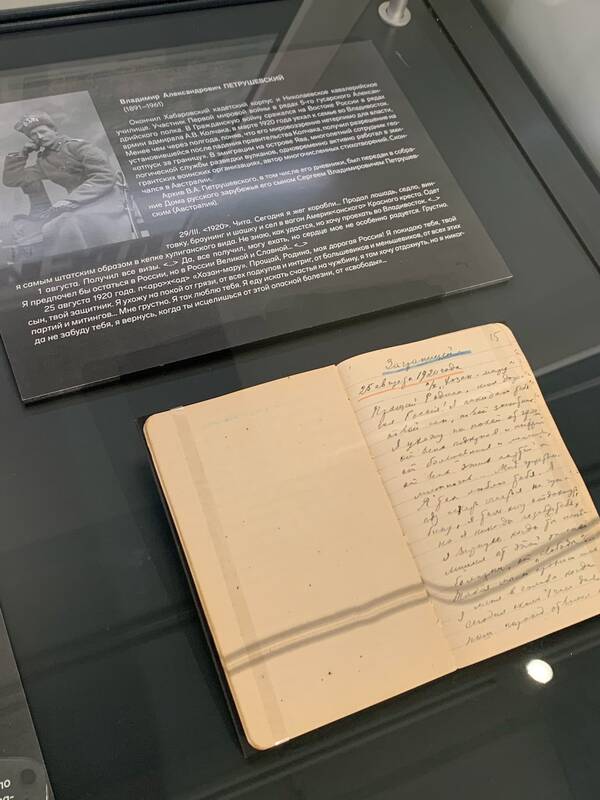 Владимир Александрович ПЕТРУШЕВСКИЙ
(1891–1961)
Окончил Хабаровский кадетский корпус и Николаевское кавалерийское
училище. Участник Первой мировой войны в рядах 5-го гусарского Алексан-
дрийского полка. В Гражданскую войну сражался на Востоке России в рядах
армии адмирала А.В. Колчака, в марте 1920 года уехал с семьей во Владивосток.
Менее чем через полгода, поняв, что его мировоззрение нетерпимо для власти,
установившейся после падения правительства Колчака, получил разрешение на
«отпуск за границу». В эмиграции на острове Ява, многолетний сотрудник гео-
логической службы разведки вулканов, одновременно активно работал в эми-
грантских воинских организациях, автор многочисленных стихотворений. Скон-
чался в Австралии.
Архив В.А. Петрушевского, в том числе его дневники, был передан в собра-
ние Дома русского зарубежья его сыном Сергеем Владимировичем Петрушев-
ским (Австралия).
29/III. <1920>. Чита. Сегодня я жег корабли... Продал лошадь, седло, вин-
товку, браунинг и шашку и сел в вагон Америк<анского> Красного креста. Одет
я самым штатским образом в кепке хулиганского вида. Не знаю, как удастся, но хочу проехать во Владивосток. <...>
1 августа. Получил все визы. <...> Да, все получил, могу ехать, но сердце мое не особенно радуется. Грустно.
Я предпочел бы остаться в России, но в России Великой и Славной... <...>
25 августа 1920 года. п<аро>х<од> «Хозан-мару». Прощай, Родина, моя дорогая Россия! Я покидаю тебя, твой
сын, твой защитник. Я ухожу на покой от грязи, от всех подкупов и интриг, от большевиков и меньшевиков, от всех этих
партий и митингов... Мне грустно. Я так люблю тебя. Я еду искать счастья на чужбину, я там хочу отдохнуть, но я никог-
да не забуду тебя, я вернусь, когда ты исцелишься от этой опасной болезни, от «свободы»...
15
Заграницей
25 августа 1920 года
п/х „Хозан-мару“
Прощай Родина, моя доро-
гая Россия! Я покидаю тебя,
твой сын, твой защитник.
Я ухожу на покой от грязи
от всех подкупов и интриг
от большевиков и меньше
от всех этих партий и
митингов... Мне грустно.
Я так люблю тебя. Я
еду искать счастья на чуж-
бину, я там хочу отдохнуть
но я никогда не забуду тебя,
я вернусь, когда ты исце-
лишься от этой опасной
болезни, от „свободы“...